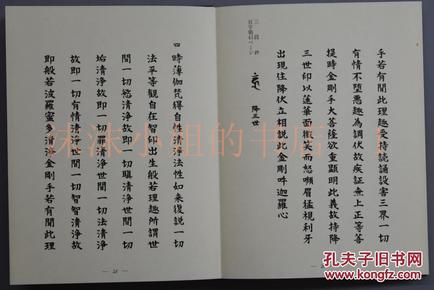 手若有聞此理趣受持讀誦設害三界一切
有情不墮惡趣為調伏故疾証無上正等菩
提時金剛手大菩薩欲重顯明此義故持降
三世印以蓮華面微笑而怒顰眉猛視利牙
出現住降伏立相說此金剛吽迦羅心
降三世
四 時薄伽梵得自性清淨法性如來復說一切
法平等觀自在智印出生般若理趣所謂世
間一切慾清淨故即一切瞋清淨世間一切
垢清淨故即一切罪清淨世間一切法清淨
故即一切有情清淨世間一切智智清淨故
即般若波羅蜜多清淨金剛手若有聞此理
— 21 —
妹妹小姐的书店
孔夫子旧书网
www.kongfz.com